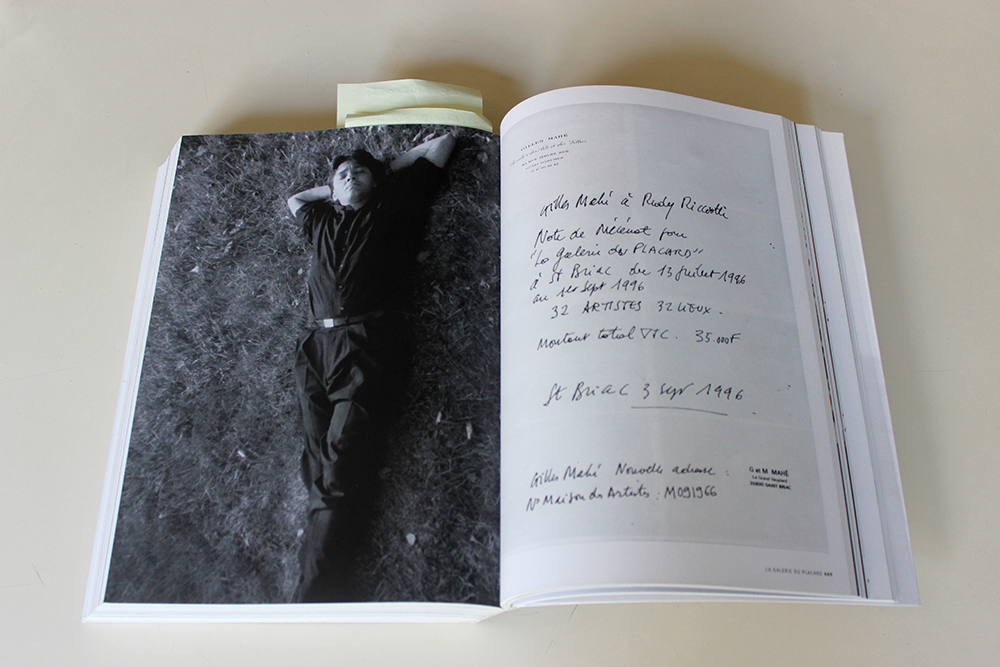 GILLES MAHÉ
Gilles Mahé à Rudy Ricciotti
Note de Mécénat pour
"La galerie du PLACARD"
à St BRIAC du 13 juillet 1996
au 1er Sept 1996
32 ARTISTES 32 LIEUX.
Montant total TTC. 35.000F
St BRIAC 3 Sept 1996
Gilles Mahé Nouvelle adresse :
N° Maison des Artistes : M091966
G et M MAHÉ
35800 SAINT BRIAC
LA GALERIE DU PLACARD